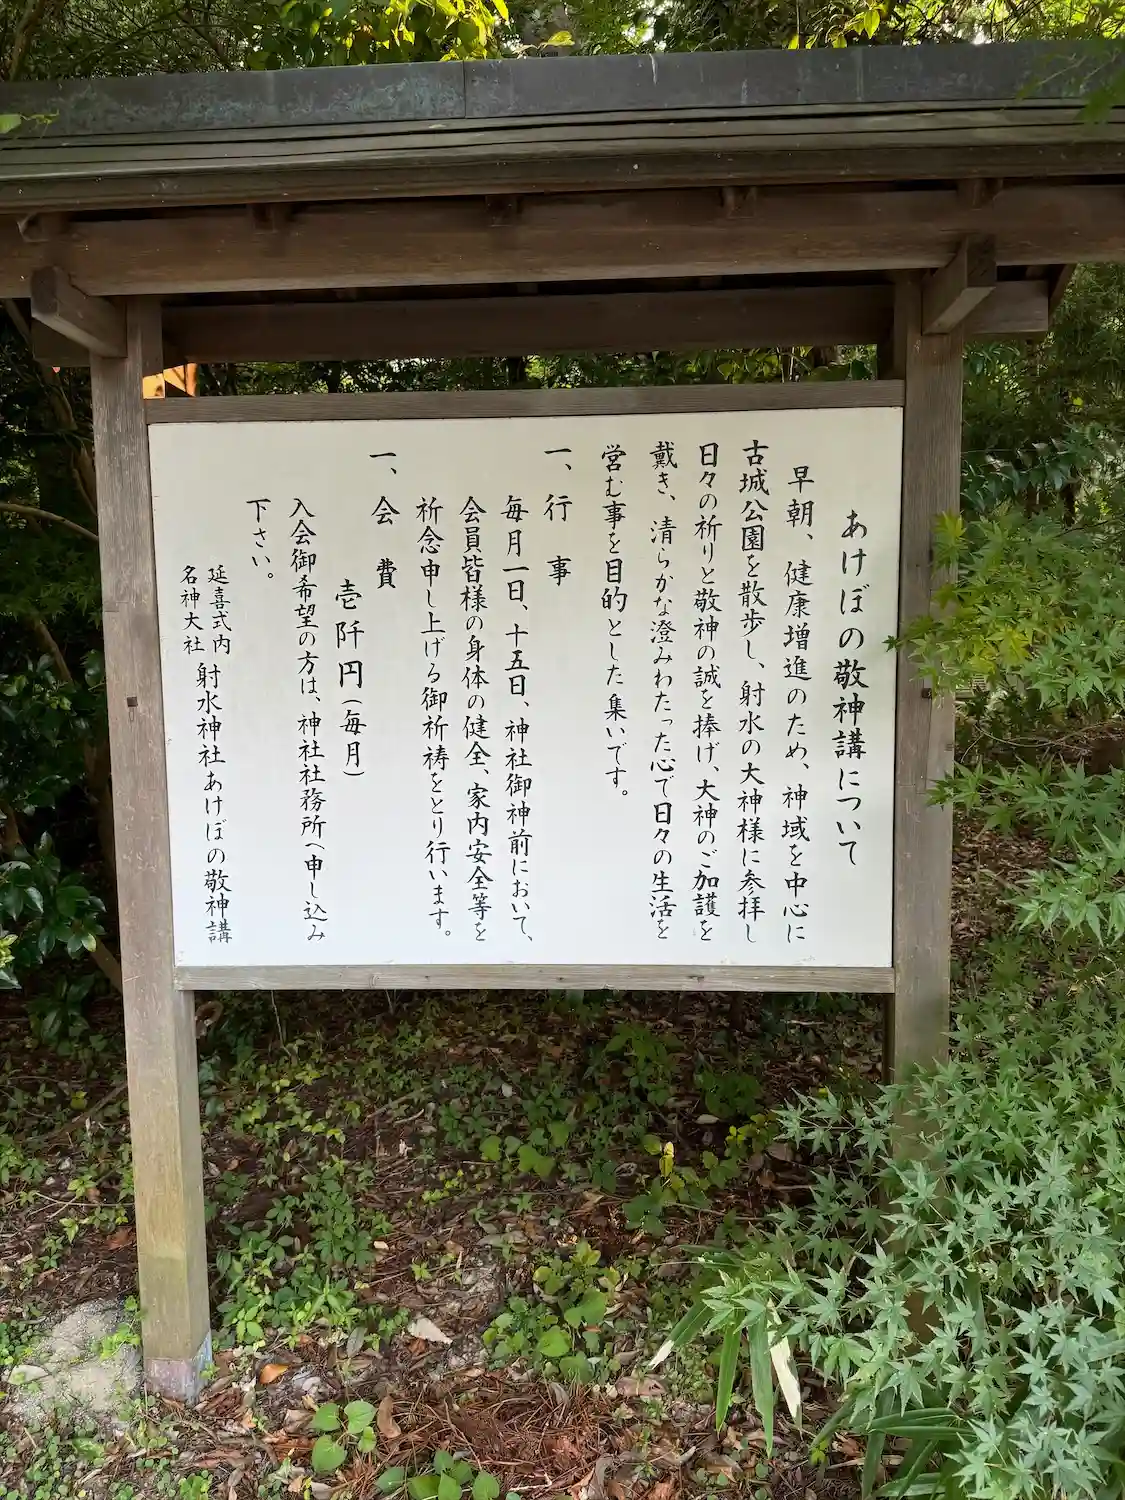 あけぼの敬神講について
早朝、健康増進のため、神域を中心に
古城公園を散歩し、射水の大神様に参拝し
日々の祈りと敬神の誠を捧げ、大神のご加護を
戴き、清らかな澄みわたった心で日々の生活を
営む事を目的とした集いです。
一、行事
毎月一日、十五日、神社御神前において、
会員皆様の身体の健全、家内安全等を
祈念申し上げる御祈祷をとり行います。
一、会費
壱阡円(毎月)
入会御希望の方は、神社社務所へ申し込み
下さい。
延喜式内
名神大社
射水神社あけぼの敬神講